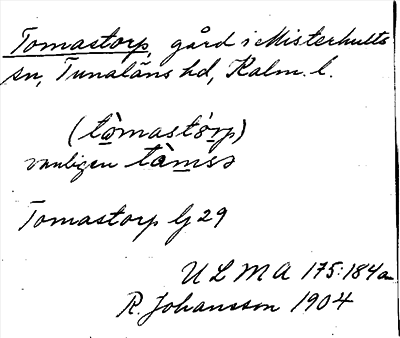 Tomastorp, gård i Misterhults
sn, Tunaläns hd, Kalm. l.
(tòmastó̤rp)
vanligen tàmsə
Tomastorp Lj 29
ULMA 175:184a
R. Johansson 1904